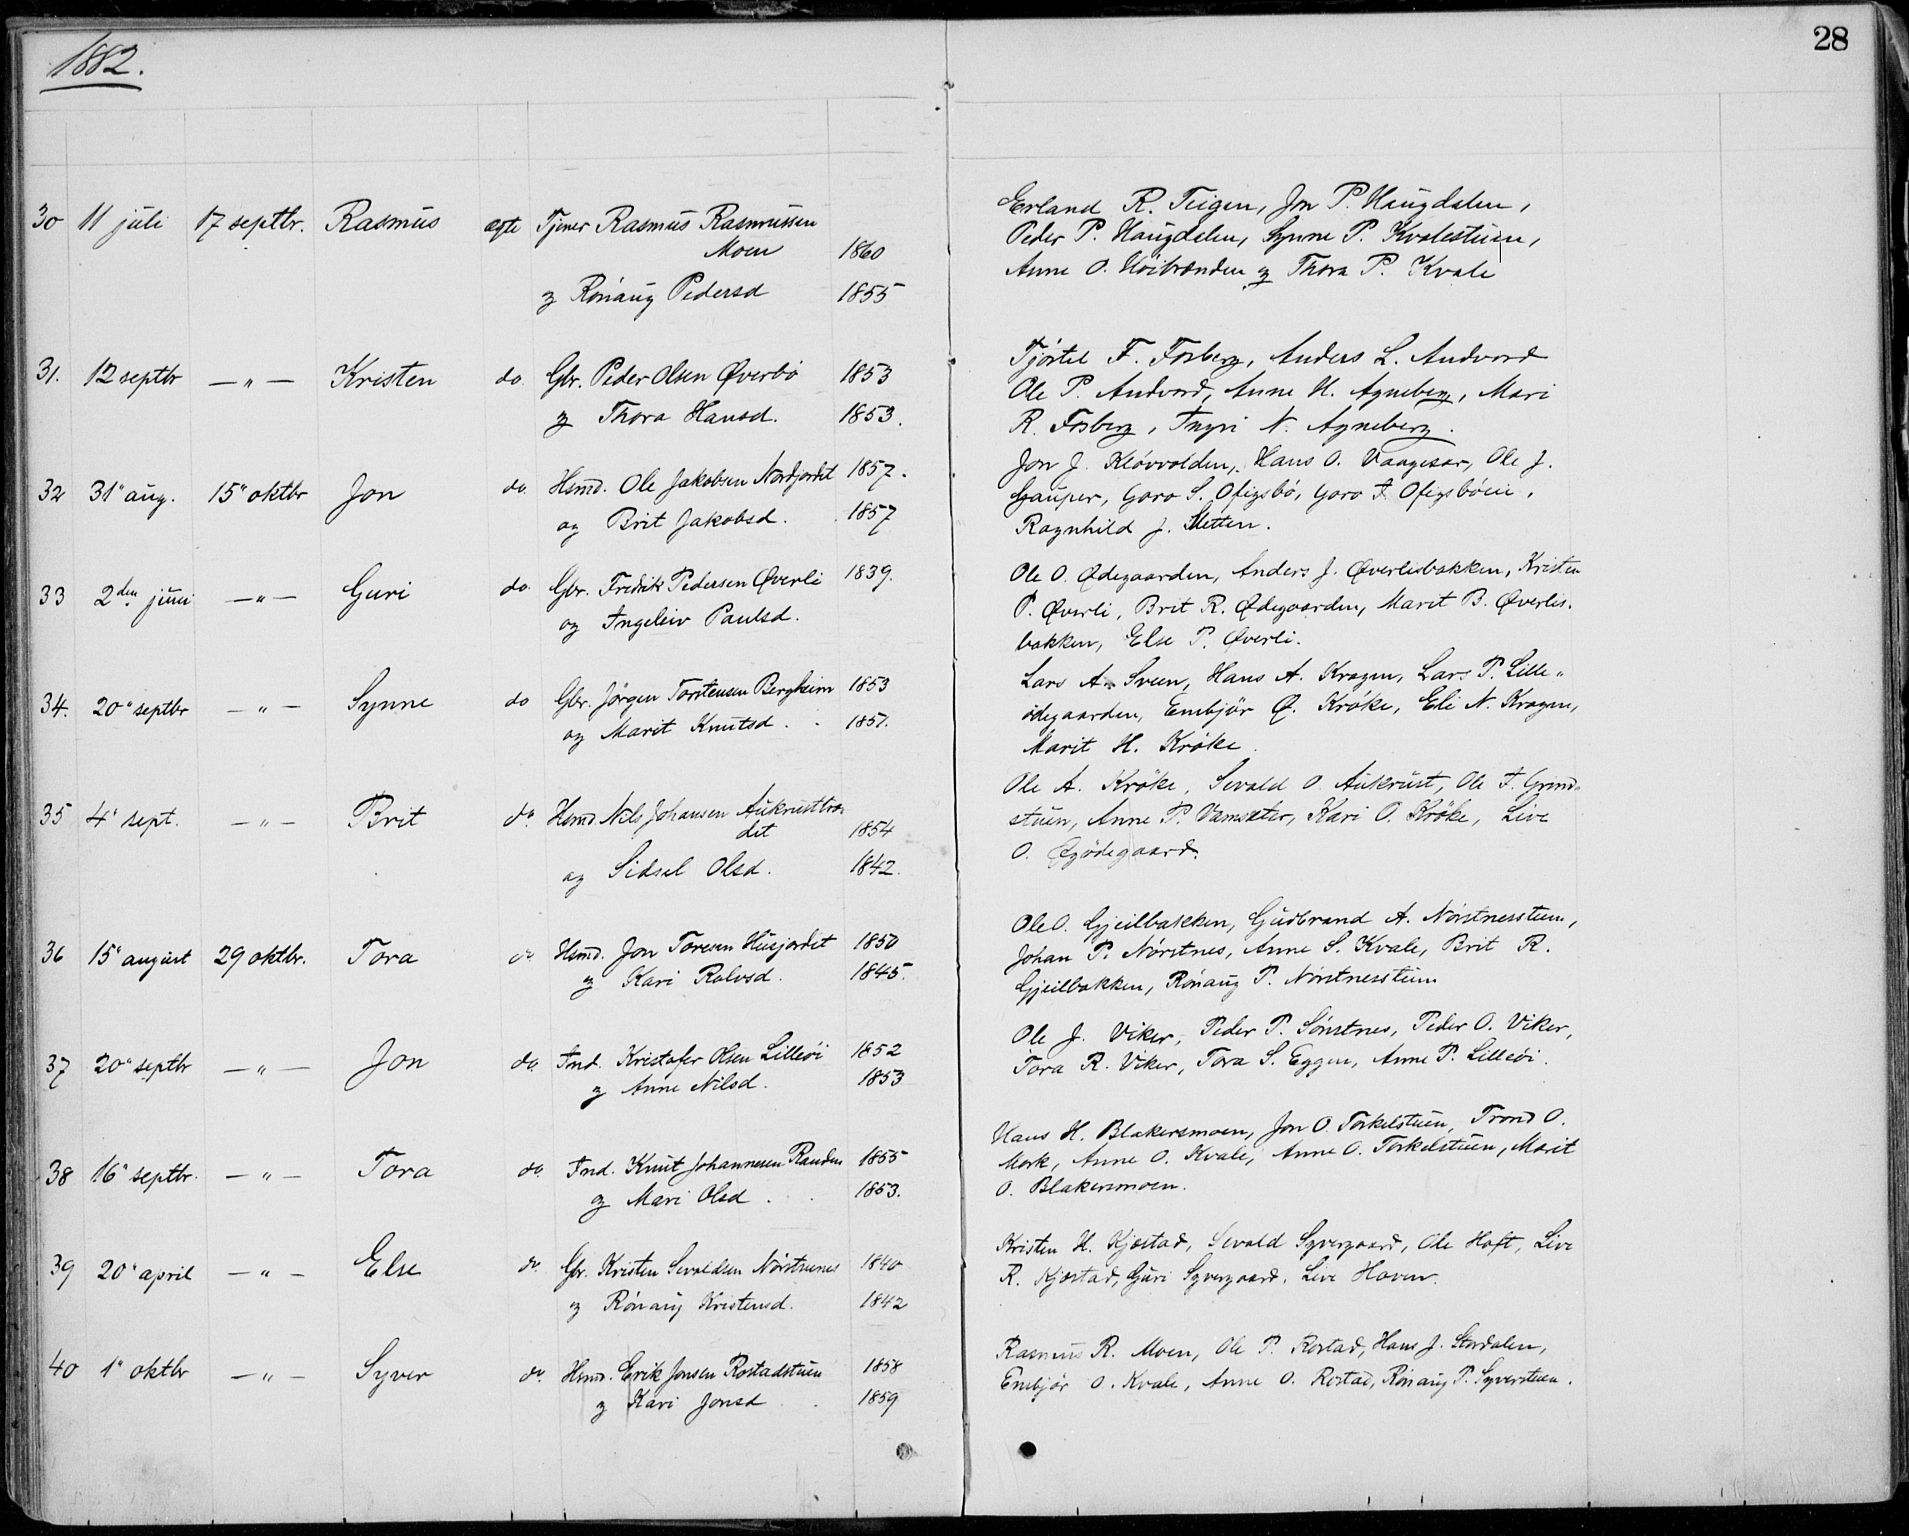 1882.
28
30 11 juli 17 septbr. Rasmus ægte Tjener Rasmus Rasmussen
Moen 1860
og Rönaug Pedersd 1855
Erland R. Teigen, Jon P. Haugdalen,
Peder P. Haugdalen, Synne P. Kvalestuen,
Anne O. Höibrænden og Thora P. Kvale
31. 12 septbr — " — Kristen do Gbr. Peder Olsen Øverbö 1853
og Thora Hansd. 1853.
Tjöstel F. Fosberg, Anders L. Andvord
Ole P. Andvord, Anne H. Agneberg, Mari
R. Fosberg, Ingri N. Agneberg.
32 31" aug. 15" oktbr Jon do. Hsmd. Ole Jakobsen Nordjordet 1857.
og Brit Jakobsd. 1857
Jon J. Klövvolden, Hans O. Vaagesar, Ole J.
Gauper, Goro S. Ofigsbö, Goro I Ofigsböeie,
Ragnhild J. Sletten.
33 2den juni — " — Guri do. Gbr. Fredrik Pedersen Øverli 1839.
og Ingeleiv Paulsd.
Ole O. Ødegaarden, Anders J. Øverlisbakken, Kristen
P. Øverli, Brit R. Ødegaarden, Marit B. Øverlis-
bakken, Else P. Øverli.
34. 20" septbr — " — Synne do Gbr. Jörgen Torstensen Bergheim 1853
og Marit Knutsd. 1857.
Lars A. Sveen, Hans A. Kragen, Lars P. Lille-
ödegaarden, Embjör Ø. Kröke, Eli N. Kragen,
Marit H. Kröke.
35 4" sept. — " — Brit do. Hsmd. Nils Johansen Aukrusttræ-
det 1854
og Sidsel Olsd. 1842.
Ole A. Kröke, Sevald O. Aukrust, Ole I. Grind-
stuen, Anne P. Vamsæter, Kari O. Kröke, Live
O. Øyödegaard.
36 15" august 29 oktbr. Tora do. Hsmd. Jon Toresen Husjordet 1850
og Kari Rolvsd. 1845.
Ole O. Gjeilbakken, Gudbrand A. Nörstnesstuen,
Johan P. Nörstnes, Anne S. Kvale, Brit R.
Gjeilbakken, Rönaug P. Nörstnesstuen
37 20" septbr — " — Jon do. Ind. Kristofer Olsen Lilleöi 1852
og Anne Nilsd. 1853
Ole J. Viker, Peder P. Sönstnes, Peder O. Viker,
Tora R. Viker, Tora S. Eggen, Anne P. Lilleöi.
38 16" septbr. — " — Tora do. Ind. Knut Johannesen Randen 1855
og Mari Olsd. 1853.
Hans H. Blakersmoen, Jon O. Torkelstuen, Trond O.
Mork, Anne O. Kvale, Anne O. Torkelstuen, Marit
O. Blakersmoen.
39 20" april — " — Else do. Gbr. Kristen Sevaldsen Nörstnes 1840
og Rönaug Kristensd. 1842
Kristen H. Kjæstad, Sevald Syvergaard, Ole Hoft, Live
R. Kjæstad, Guri Syvergaard, Live Haven.
40 1" oktbr — " — Syver do. Hsmd. Erik Jonsen Rostadstuen 1858
og Kari Jonsd 1859
Rasmus R. Moen, Ole P. Rostad, Hans J. Stordalen,
Embjör O. Kvale, Anne O. Rostad, Rönaug P. Syverstuen.